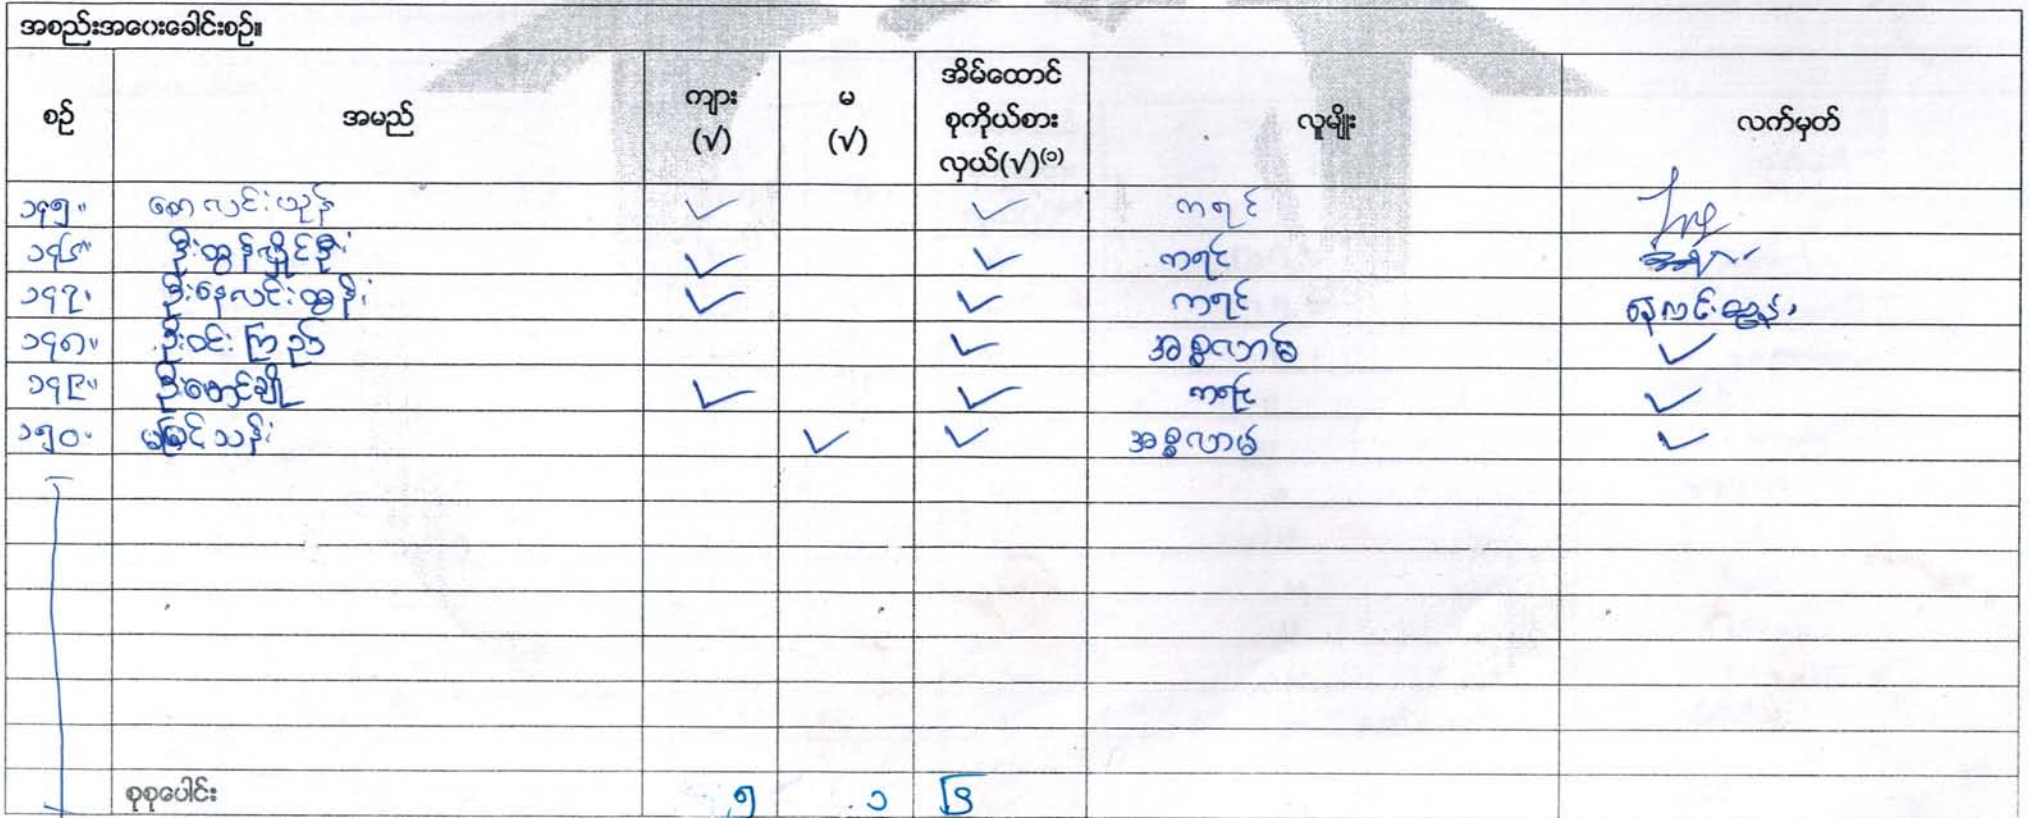 အစည်းအဝေးခေါင်းစဉ်။
စဉ် အမည် ကျား (√) မ (√) အိမ်ထောင်စုကိုယ်စားလှယ်(√)(၁) လူမျိုး လက်မှတ်
၁၄၅။ စောလင်းယုန် ✓ ✓ ကရင်
၁၄၆။ ဦးထွန်းလှိုင်ဦး ✓ ✓ ကရင်
၁၄၇။ ဦးနေလင်းထွန်း ✓ ✓ ကရင် နေလင်းထွန်း
၁၄၈။ ဦးဝင်းကြည် ✓ အစ္စလာမ် ✓
၁၄၉။ ဦးမောင်ချို ✓ ✓ ကရင် ✓
၁၅၀။ မမြင့်သန်း ✓ ✓ အစ္စလာမ် ✓
စုစုပေါင်း ၅ ၁ ၆